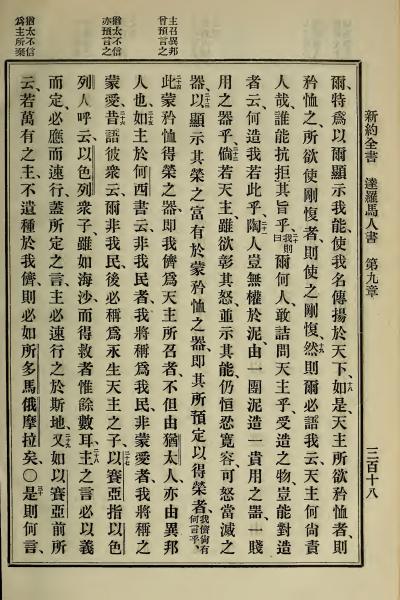 新約全書 達羅馬人書 第九章 三百十八
主召異邦
曾預言之
猶太不信
亦預言之
猶太不信
爲主所棄
爾特爲以爾顯示我能、使我名傳揚於天下、十八如是、天主所欲矜恤者、則
矜恤之、所欲使剛愎者、則使之剛愎、十九然則爾必語我云、天主何尚責
人哉、誰能抗拒其旨乎、二十我則曰爾何人、敢詰問天主乎、受造之物、豈能對造
者云、何造我若此乎、二一陶人豈無權於泥、由一團泥、造一貴用之器、一賤
用之器乎、二二倘若天主、雖欲彰其怒、並示其能、仍恒忍寬容可怒當滅之
器、二三以顯示其榮之富有於蒙矜恤之器、即其所預定以得榮者、我儕尚有何言乎
二四此蒙矜恤得榮之器、即我儕爲天主所召者、不但由猶太人、亦由異邦
人也、二五如主於何西書云、非我民者、我將稱爲我民、非蒙愛者、我將稱之
蒙愛、二六昔語彼衆云、爾非我民、後必稱爲永生天主之子、二七以賽亞指以色
列人呼云、以色列衆子、雖如海沙、而得救者惟餘數耳、二八主之言必以義
而定、必應而速行、蓋所定之言、主必速行之於斯地、二九又如以賽亞前所
云、若萬有之主、不遺種於我儕、則必如所多馬俄摩拉矣、○三十是則何言、